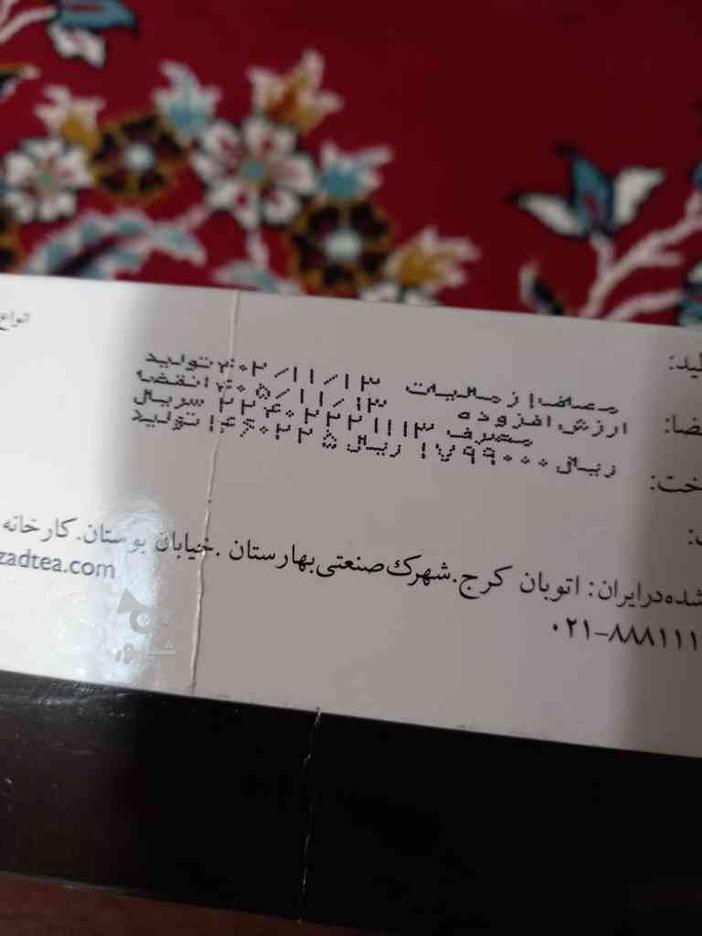 انواع
معاف از مالیات ۴۰۲/۱۱/۱۳ تولید
ارزش افزوده ۴۰۵/۱۱/۱۳ انقضا
مصرف ۲۲۴۰۲۲۲۱۱۱۳ سریال
ریال ۱۷۹۹۰۰۰ ریال ۱۴۶۰۲۲۵ تولید
شده در ایران: اتوبان کرج. شهرک صنعتی بهارستان . خیابان بوستان. کارخانه
zadtea.com
۰۲۱-۸۸۸۱۱۱